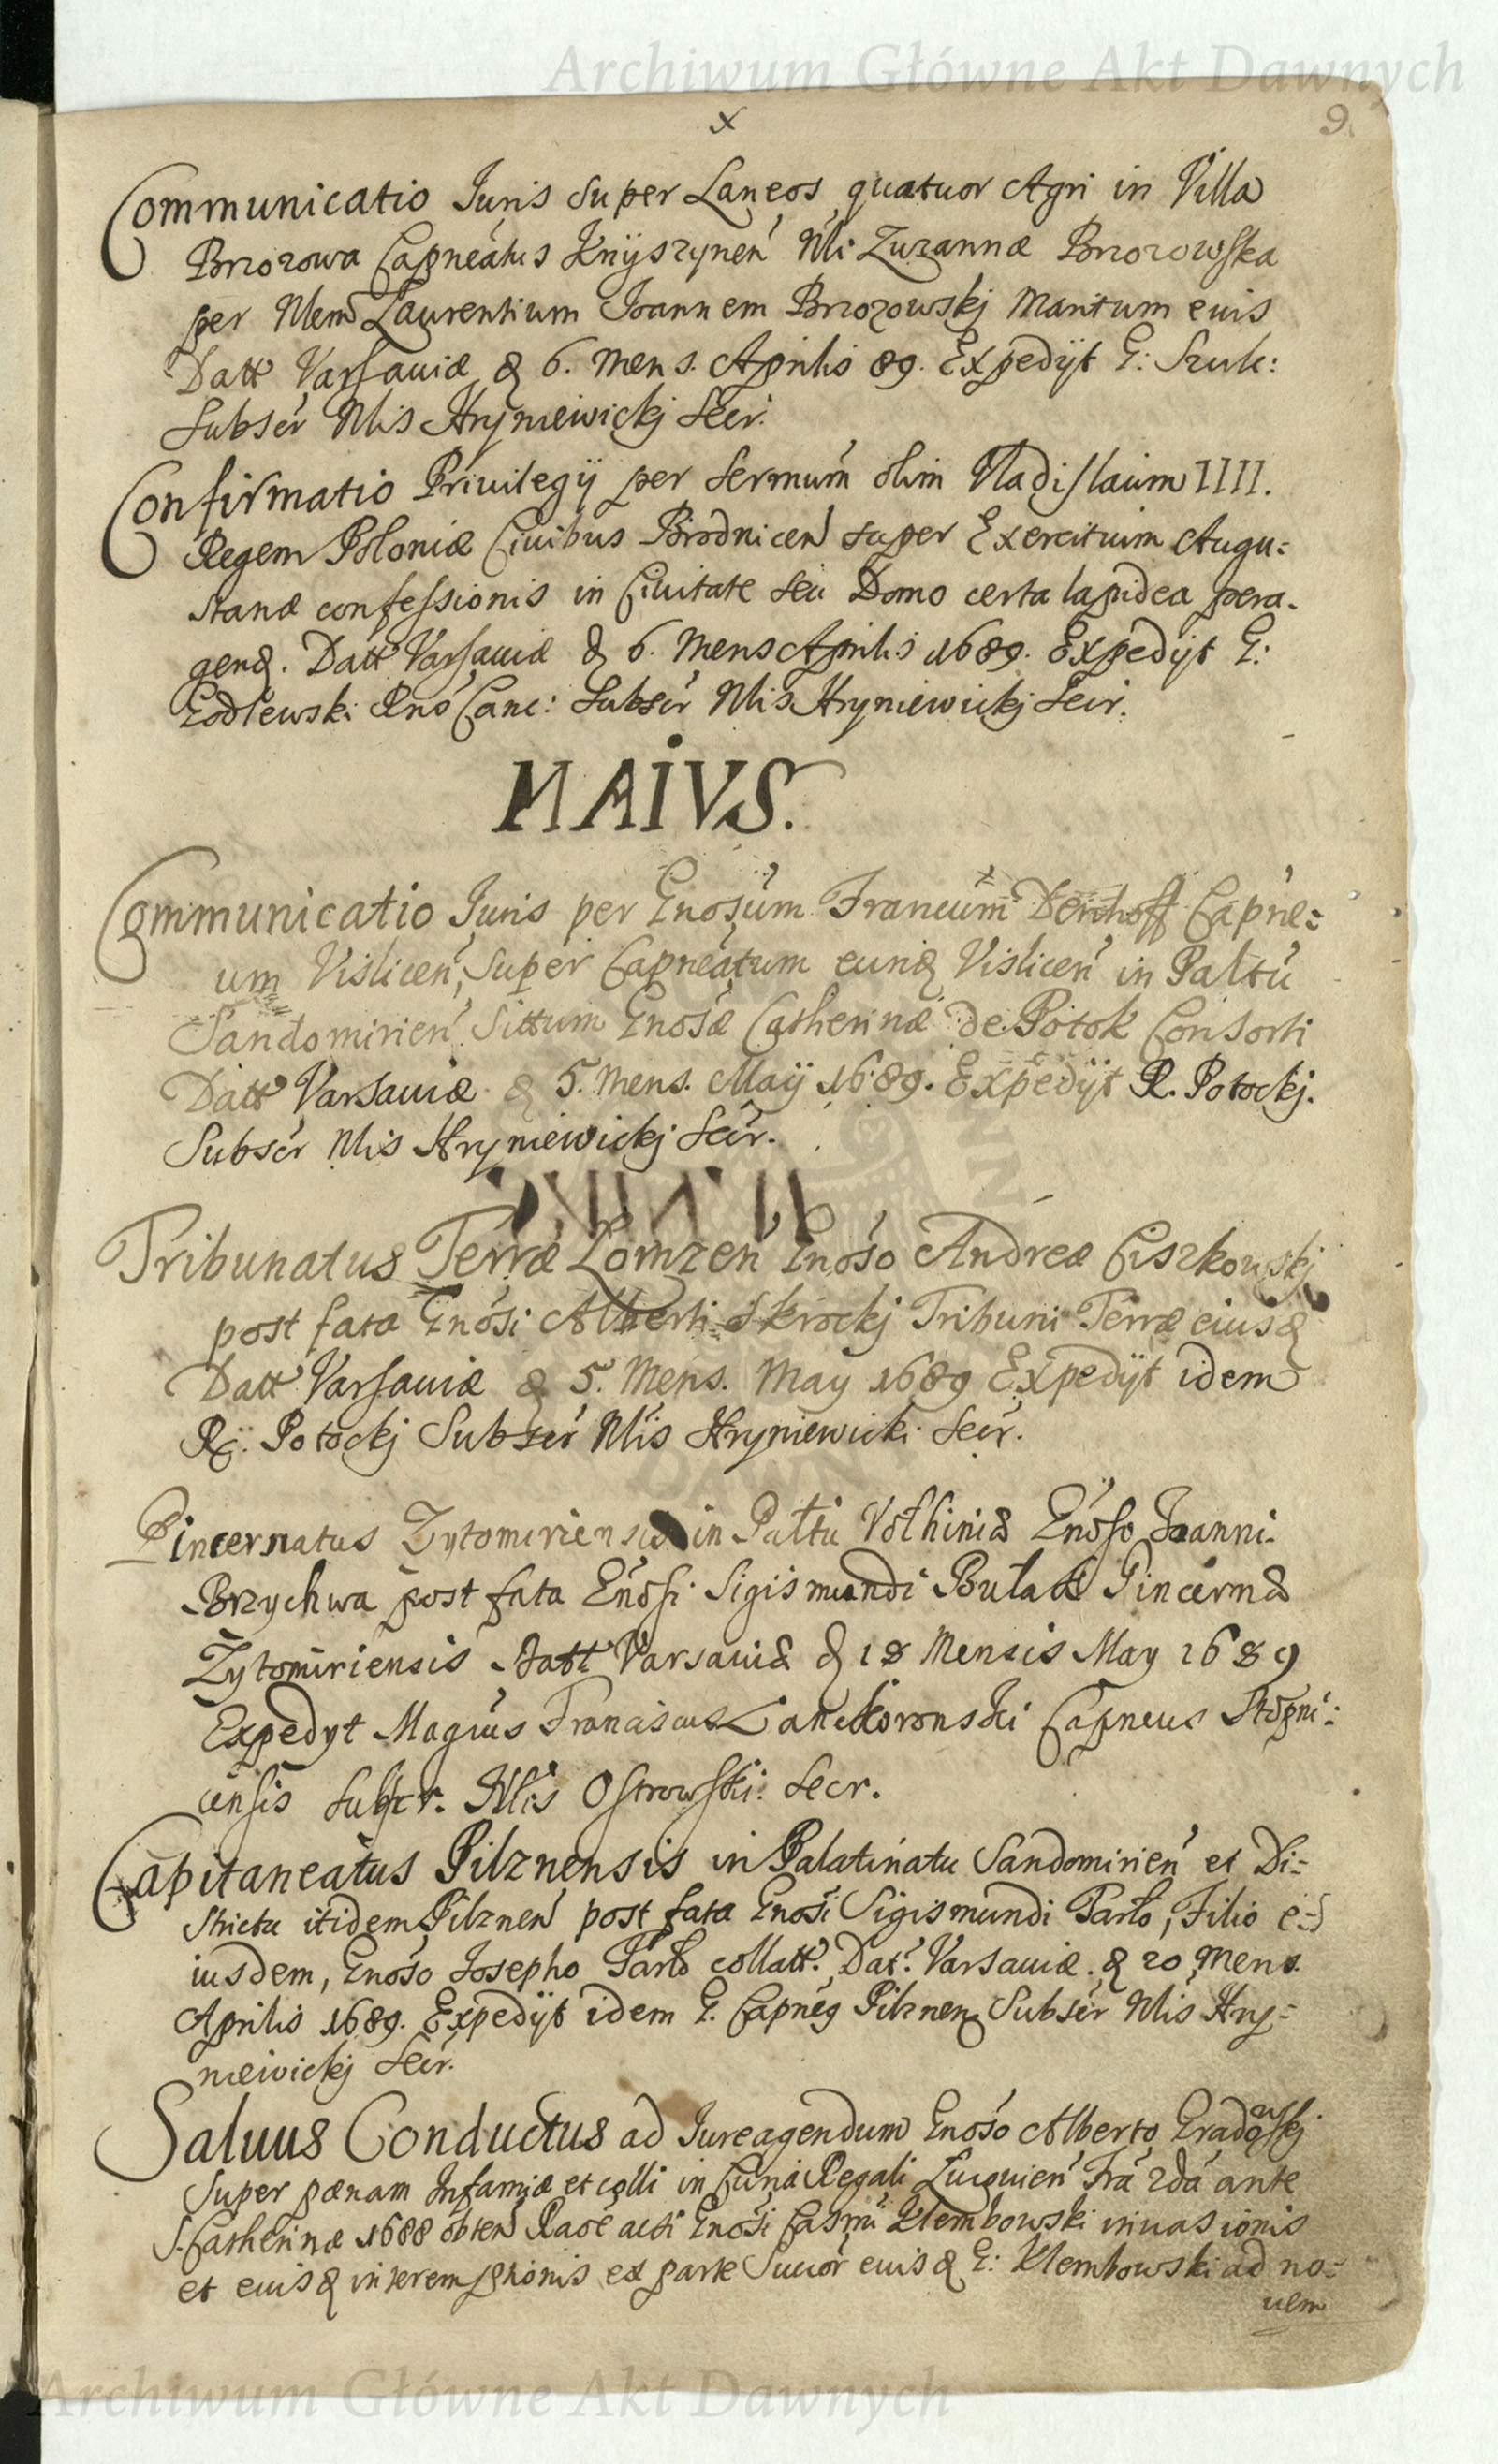 Archiwum Główne Akt Dawnych
x
9.
Communicatio Juris super Laneos quatuor Agri in Villa
Brzozowa Capneatus Knÿszynen Nli Zuzannæ Brzozowska
per Nlem Laurentium Joannem Brzozowskj Maritum euis
Datt Varsauiæ d 6. Mens. Aprilis 89. Expedÿt G: Szulc:
Subscr Nlis Hryniewickj Secr.
Confirmatio Priuilegÿ per Sermum olim Vladislaum IIII.
Regem Poloniæ Ciuibus Brodnicen super Exercitium Augu:
stanæ confessionis in Ciuitate seu Domo certa lapidea pera-
gend. Datt Varsauiæ d 6. Mens Aprilis 1689. Expedÿt G:
Godlewski Rns Canc: Subscr Nlis Hryniewickj Secr.
MAIVS.
Communicatio Juris per Gnosum Francum Denhoff Capne:
um Vislicen, super Capneatum eund Vislicen in Paltu
Sandomirien Sittum Gnosæ Catherinæ de Potok Consorti
Datt Varsauiæ d 5. Mens. Maÿ 1689. Expedÿt R. Potockj.
Subscr Nlis Hryniewickj Secr.
Tribunatus Terræ Lomzen Gnoso Andreæ Ciszkowskj
post fata Gnosi Alberti Skrockj Tribuni Terræ eiusd
Datt Varsauiæ d 5. Mens. May 1689 Expedÿt idem
R. Potockj Subscr Nlis Hryniewicki Secr.
Pincernatus Zytomiriensis in Paltu Volhiniæ Gnoso Joanni
Brzychwa post fata Gnosi Sigismundi Bułak Pincernæ
Zytomiriensis Datt Varsauiæ d 18 Mensis May 1689
Expedyt Magcus Franciscus Lanckoronski Capneus Stopni:
censis Subscr. Nlis Ostrowski Secr.
Capitaneatus Pilznensis in Palatinatu Sandomirien et Di:
strictu itidem Pilznen post fata Gnosi Sigismundi Tarło, Filio e:
iusdem, Gnoso Josepho Tarło collatt. Dat. Varsauiæ d 20 Mens.
Aprilis 1689. Expedÿt idem G. Capneg Pilznen Subscr Nlis Hry:
niewickj Secr.
Saluus Conductus ad Jure agendum Gnoso Alberto Gradowskj
super pænam Infamiæ et colli in Curia Regali Fra 2da ante
S. Catherinæ 1688 obten Raoe acti Gnosi Casmi Klembowski inuasionis
et euisd interemptionis ex parte Succor euisd G: Klembowski ad no:
uem
Archiwum Główne Akt Dawnych